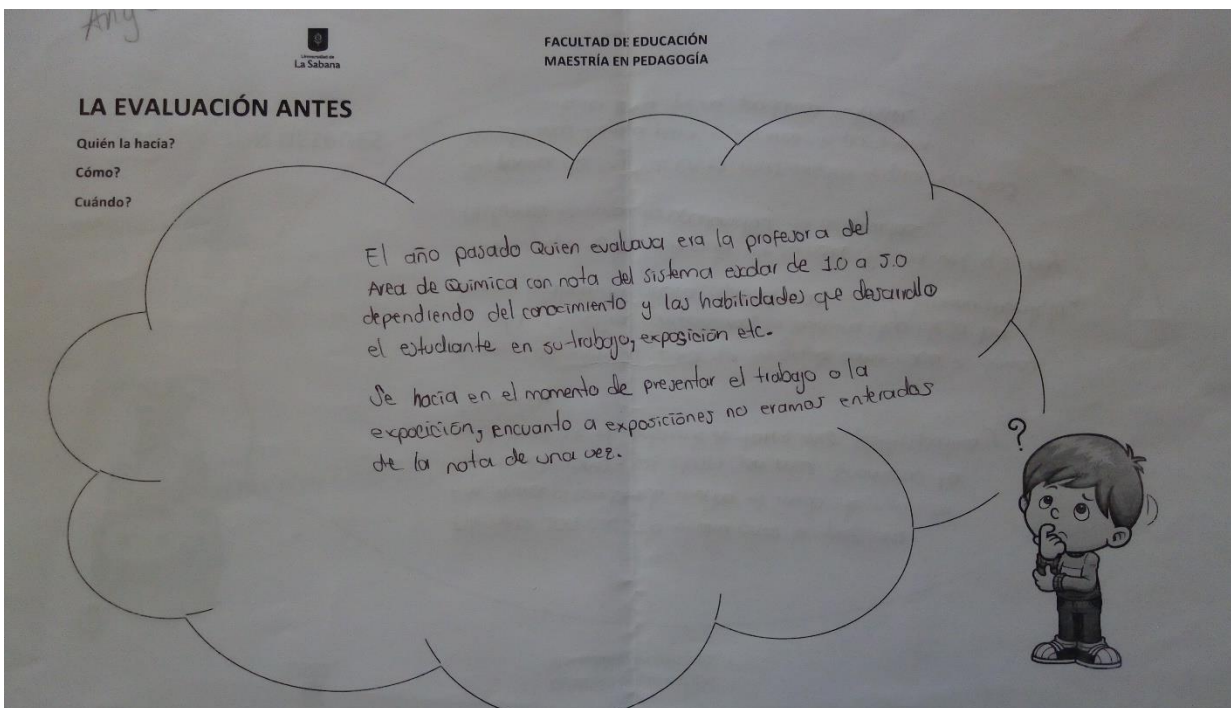 Any
Universidad de
La Sabana
FACULTAD DE EDUCACIÓN
MAESTRÍA EN PEDAGOGÍA
LA EVALUACIÓN ANTES
Quién la hacía?
Cómo?
Cuándo?
El año pasado Quien evaluava era la profesora del
Area de Quimica con nota del sistema escolar de 1.0 a 5.0
dependiendo del conocimiento y las habilidades que desarrollo
el estudiante en su trabajo, exposición etc.
Se hacia en el momento de presentar el trabajo o la
exposición, encuanto a exposiciónes no eramos enterados
de la nota de una vez.
?